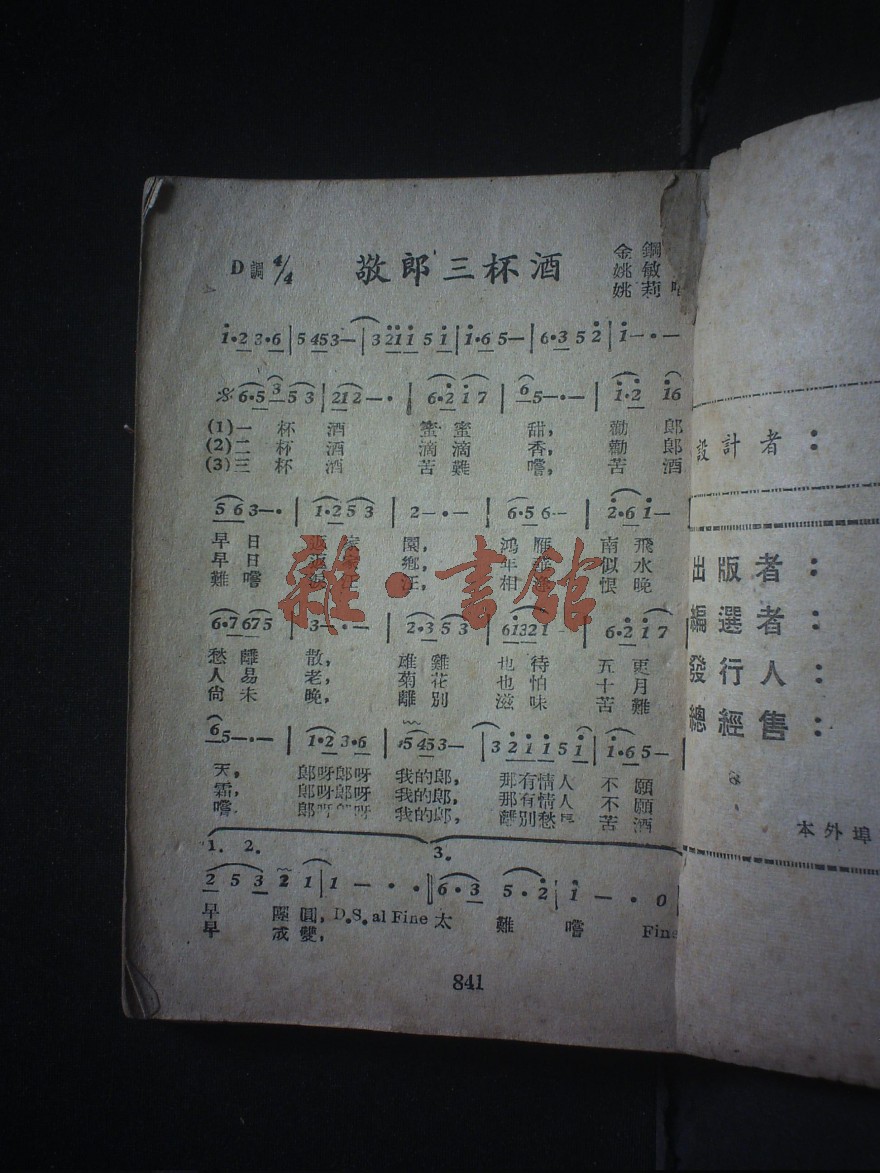 D調 4/4
敬郎三杯酒
金鋼
姚敏
姚莉 唱
1·2 3·6 | 5 453— | 3 211 5 1 | 1·6 5— | 6·3 5 2 | 1—·—
6·5 3 5 3 | 212—· | 6·2 1 7 | 6 5—·— | 1·2 16
(1)一杯酒 蜜蜜甜, 勸郎
(2)二杯酒 滴滴香, 勸郎
(3)三杯酒 苦難嚐, 苦酒
5 6 3—· | 1·2 5 3 | 2—·— | 6·5 6— | 2·6 1—
早日返家園, 鴻雁南飛
早日返家鄉, 年華似水
難嚐 汪, 相逢恨晚
6·7 675 | 3—·— | 2·3 5 3 | 61321 | 6·2 1 7
愁離散, 雄雞也待五更
人易老, 菊花也怕十月
尙未晚, 離別滋味苦難
6 5—·— | 1·2 3·6 | 5 453— | 3 2 1 1 5 1 | 1·6 5—
天, 郎呀郎呀 我的郎, 那有情人不願
霜, 郎呀郎呀 我的郎, 那有情人不願
嚐, 郎呀郎呀 我的郎, 離別愁 苦酒
1. 2. 3.
2 5 3 2 1 | 1—·· | 6·3 5·2 | 1—·0
早 團圓, D.S. al Fine 太難嚐 Fine
早 成雙,
841
雜·書館
設計者：
出版者：
編選者：
發行人：
總經售：
本外埠